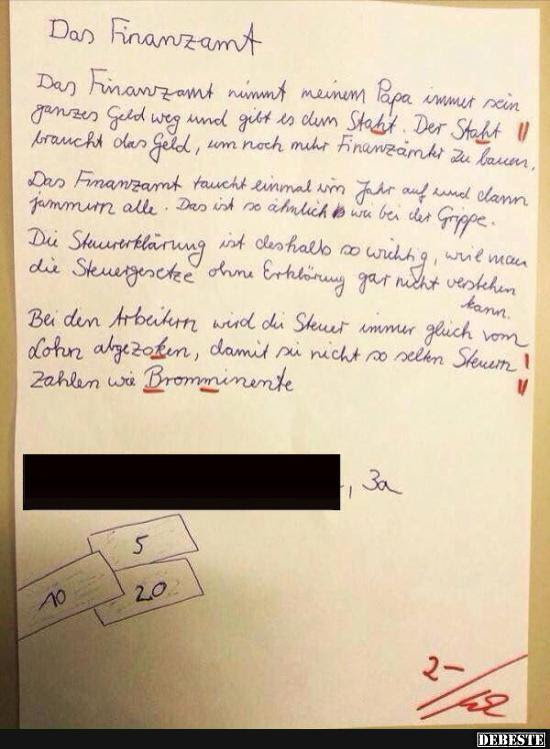 Das Finanzamt
Das Finanzamt nimmt meinem Papa immer sein
ganzes Geld weg und gibt es dem Staht. Der Staht
braucht das Geld, um noch mehr Finanzämter zu bauen.
Das Finanzamt taucht einmal im Jahr auf und dann
jammern alle. Das ist so ähnlich wie bei der Grippe.
Die Steuererklärung ist deshalb so wichtig, weil man
die Steuergesetze ohne Erklärung gar nicht verstehen
kann.
Bei den Arbeitern wird die Steuer immer gleich vom
Lohn abgezoken, damit sie nicht so selten Steuern
zahlen wie Bromminente
, 3a
5
10
20
2-
DEBESTE